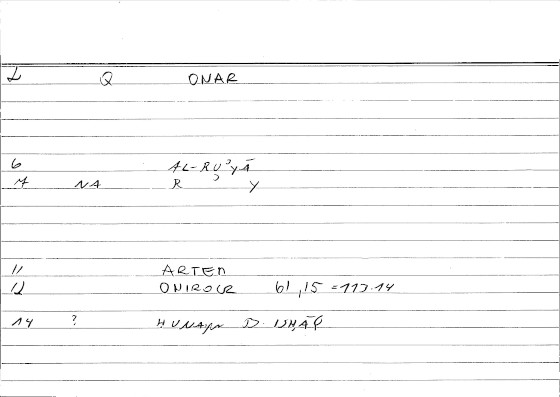 1 Q ONAR
6 AL-RUʾYĀ
7 NA R ʾ Y
11 ARTEM
12 ONIROCR 61,15 = 113.14
14 ? ḤUNAYN B. ISḤĀQ